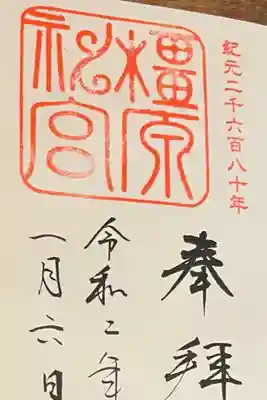 紀元二千六百八十年
奉拝
橿原神宮
令和二年
一月六日